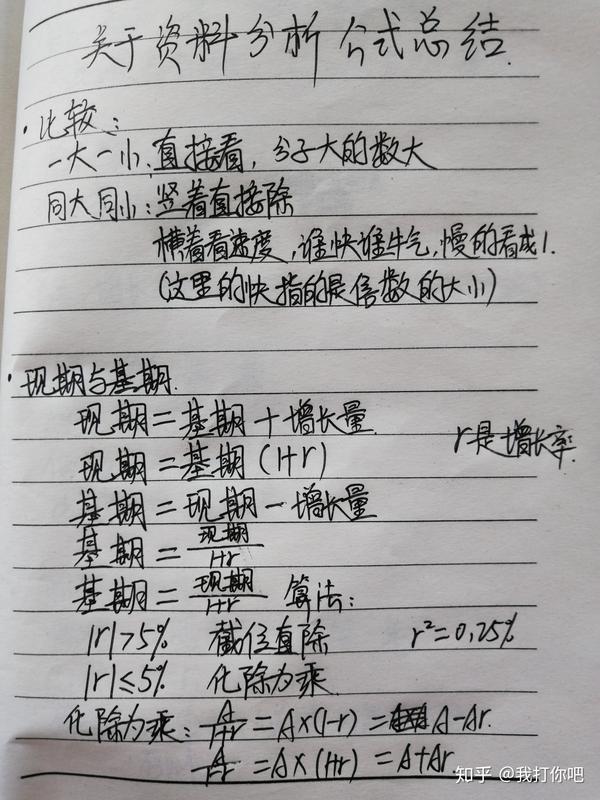 关于资料分析公式总结.
·比较:
一大一小:直接看,分子大的数大
同大同小:竖着直接除
横着看速度,谁快谁牛气,慢的看成1.
(这里的快指的是倍数的大小)
·现期与基期.
现期=基期+增长量.
现期=基期(1+r)
r是增长率.
基期=现期-增长量
基期=现期/1+r
基期=现期/1+r 算法:
|r|>5% 截位直除 r²=0.25%
|r|≤5% 化除为乘.
化除为乘:A/1+r=A×(1-r)=A-Ar.
A/1-r=A×(1+r)=A+Ar
知乎 @我打你吧